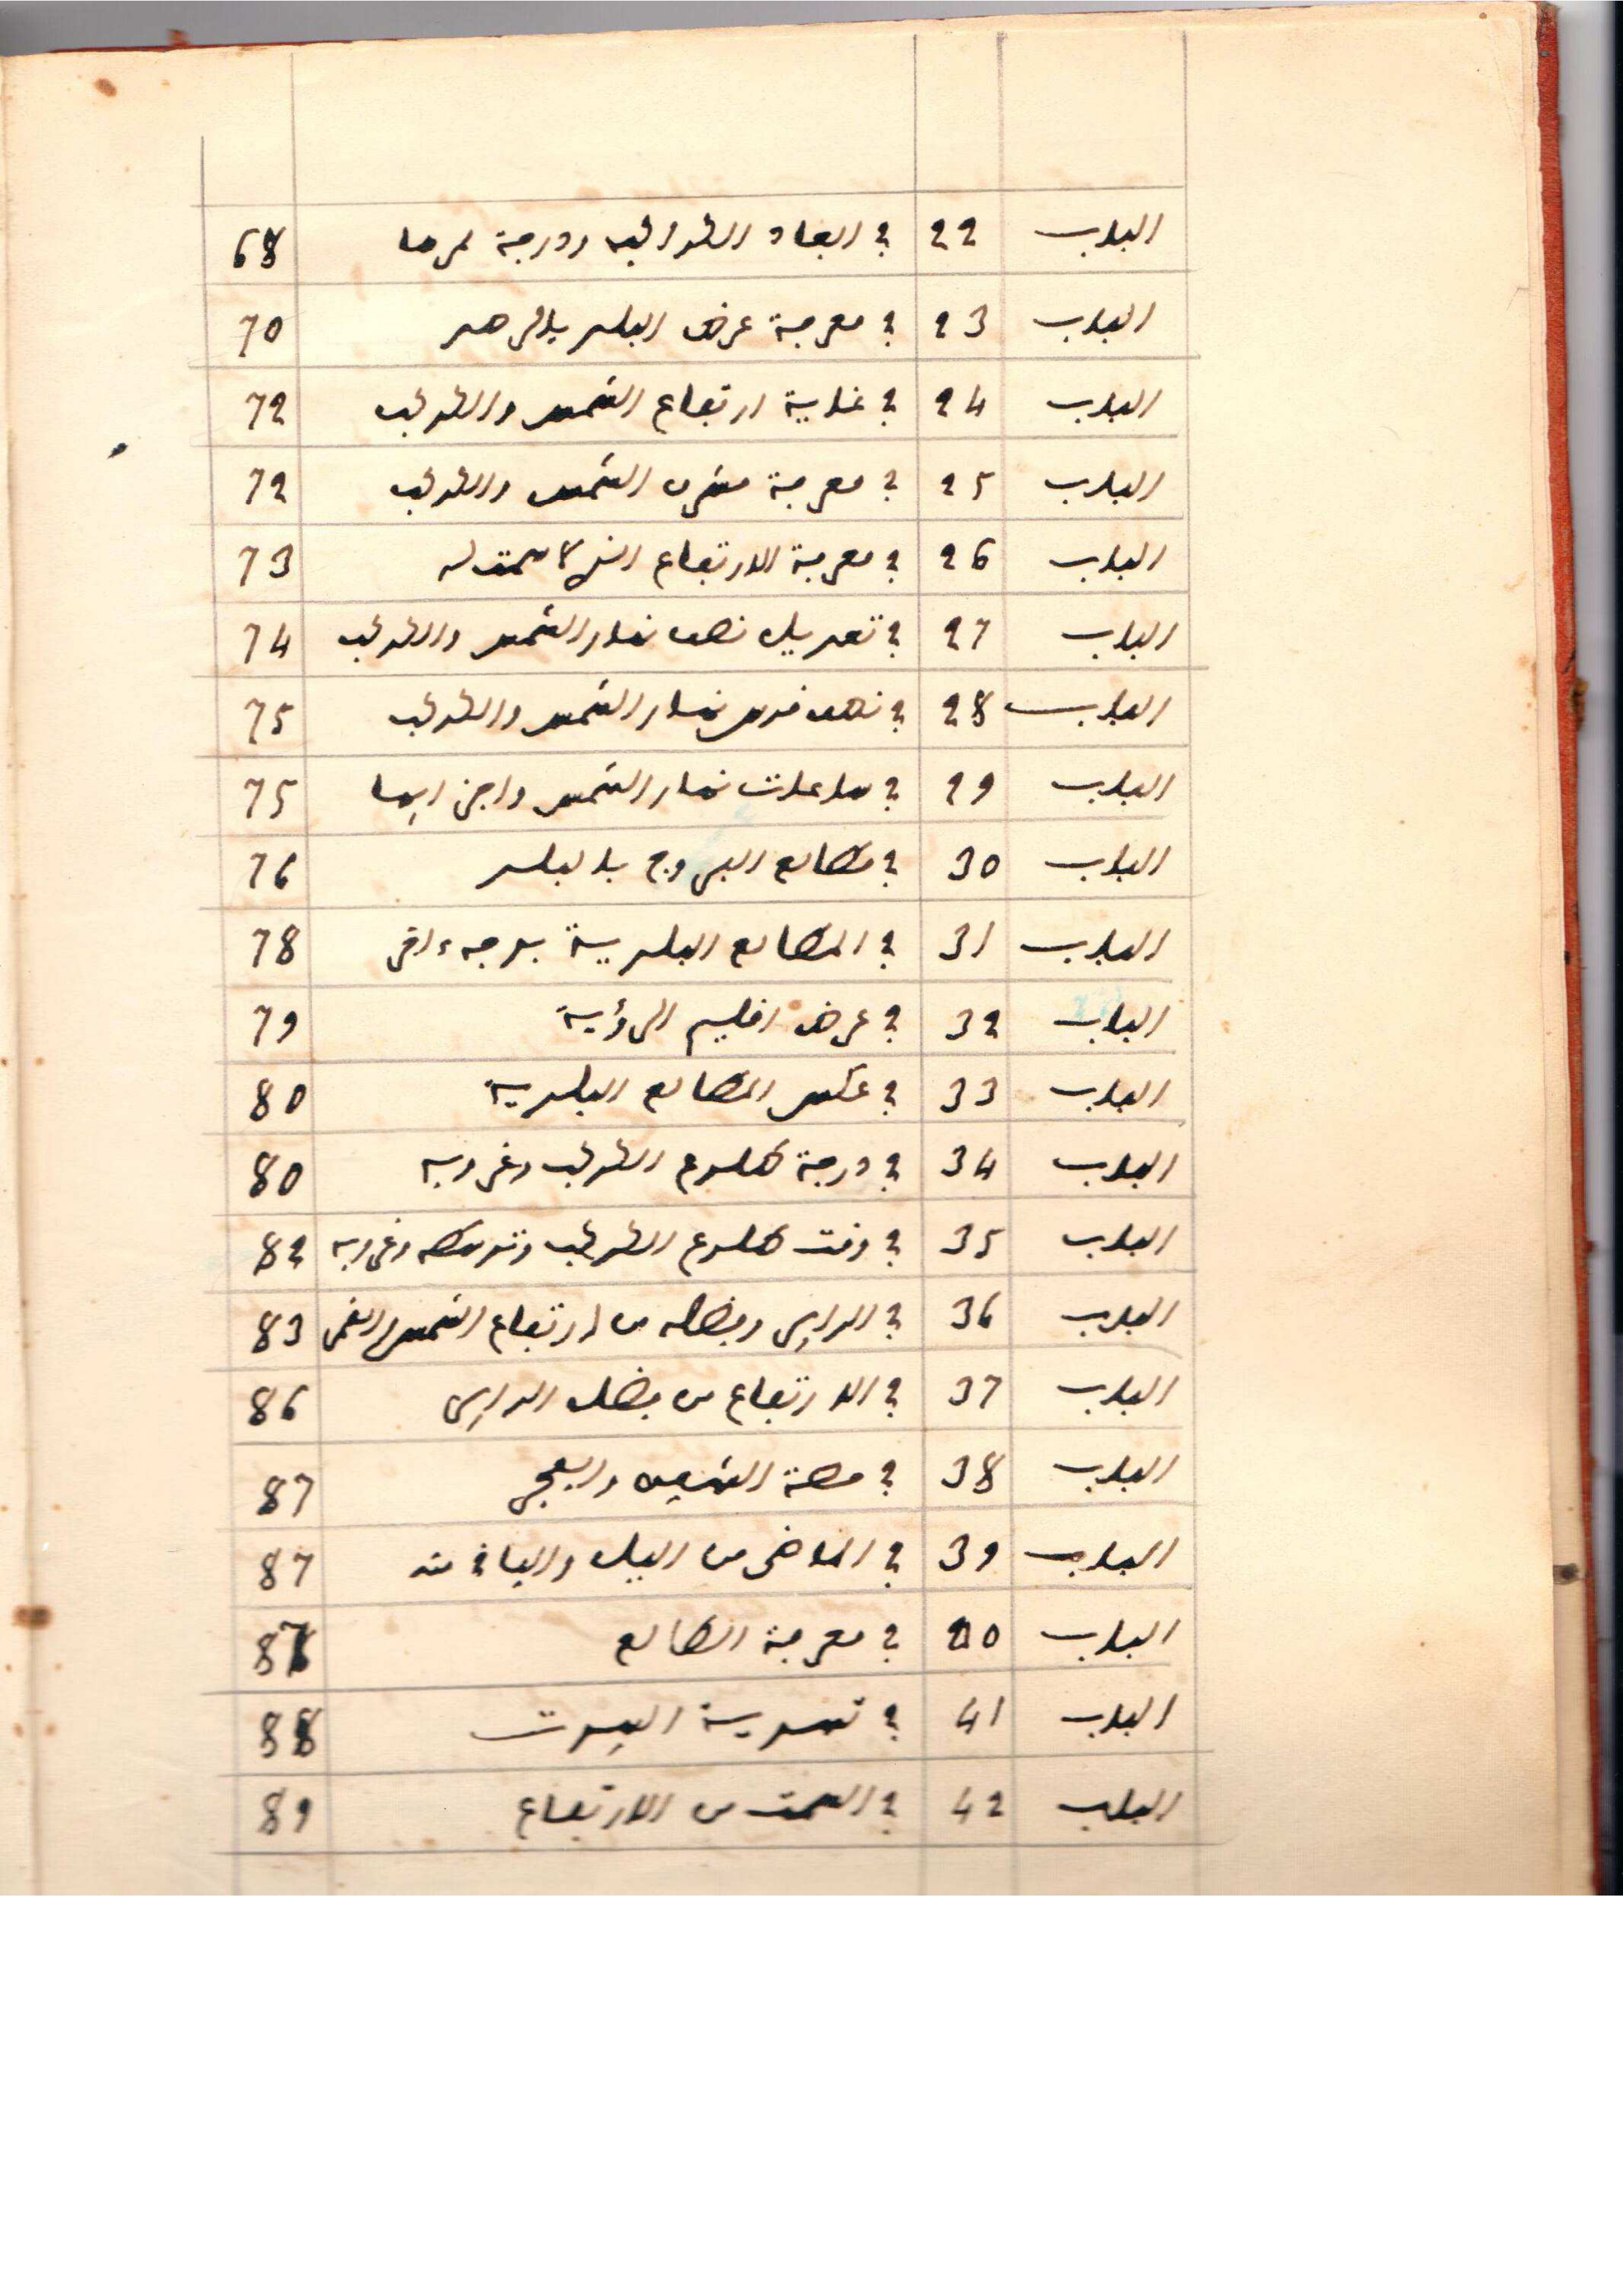 الباب 22 في ابعاد الكواكب ودرجة ممرها 68
الباب 23 في معرفة عرض البلد بالرصد 70
الباب 24 في غاية ارتفاع الشمس والكوكب 72
الباب 25 في معرفة مشرق الشمس والكوكب 72
الباب 26 في معرفة الارتفاع الذي لا سمت له 73
الباب 27 في تعديل نصف نهار الشمس والكوكب 74
الباب 28 في نصف قوس نهار الشمس والكوكب 75
الباب 29 في ساعات نهار الشمس واجزائها 75
الباب 30 في مطالع البروج بالبلد 76
الباب 31 في المطالع البلدية بوجه ءاخر 78
الباب 32 في عرض اقليم الرؤية 79
الباب 33 في عكس المطالع البلدية 80
الباب 34 في درجة طلوع الكوكب وغروبه 80
الباب 35 في وقت طلوع الكوكب وتوسطه وغروبه 82
الباب 36 في الدائر وفضله من ارتفاع الشمس 83
الباب 37 في الارتفاع من فضل الدائر 86
الباب 38 في حصة الشفق والفجر 87
الباب 39 في الماضي من اليل والباقي منه 87
الباب 40 في معرفة الطالع 87
الباب 41 في تسوية البيوت 88
الباب 42 في السمت من الارتفاع 89